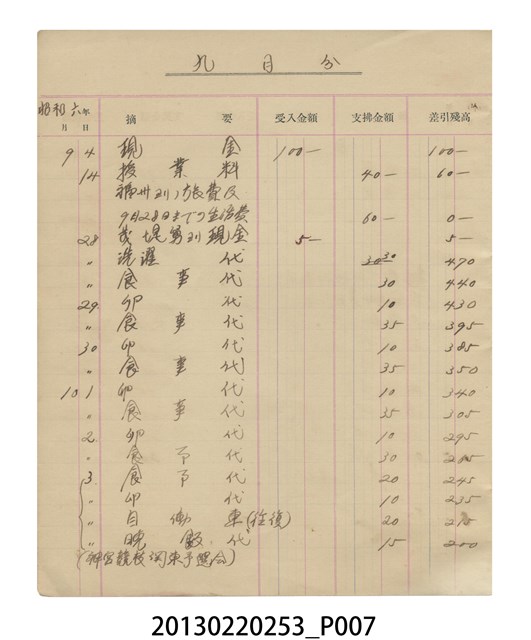 九日分
昭和六年
月 日 摘要 受入金額 支拂金額 差引残高
9 4 現金 100— 100—
14 授業料 40— 60—
旅費及
9月28日までの生活費 60— 0—
28 現金 5— 5—
〃 洗濯代 30 470
〃 食事代 30 440
29 卯代 10 430
〃 食事代 35 395
30 卯代 10 385
〃 食事代 35 350
10 1 卯代 10 340
〃 食事代 35 305
2 卯代 10 295
〃 食予代 30 265
3 食予代 20 245
〃 卯代 10 235
〃 自働車(往復) 20 215
〃 晩飯代 15 200
(神宮競技関東予選会)
20130220253_P007